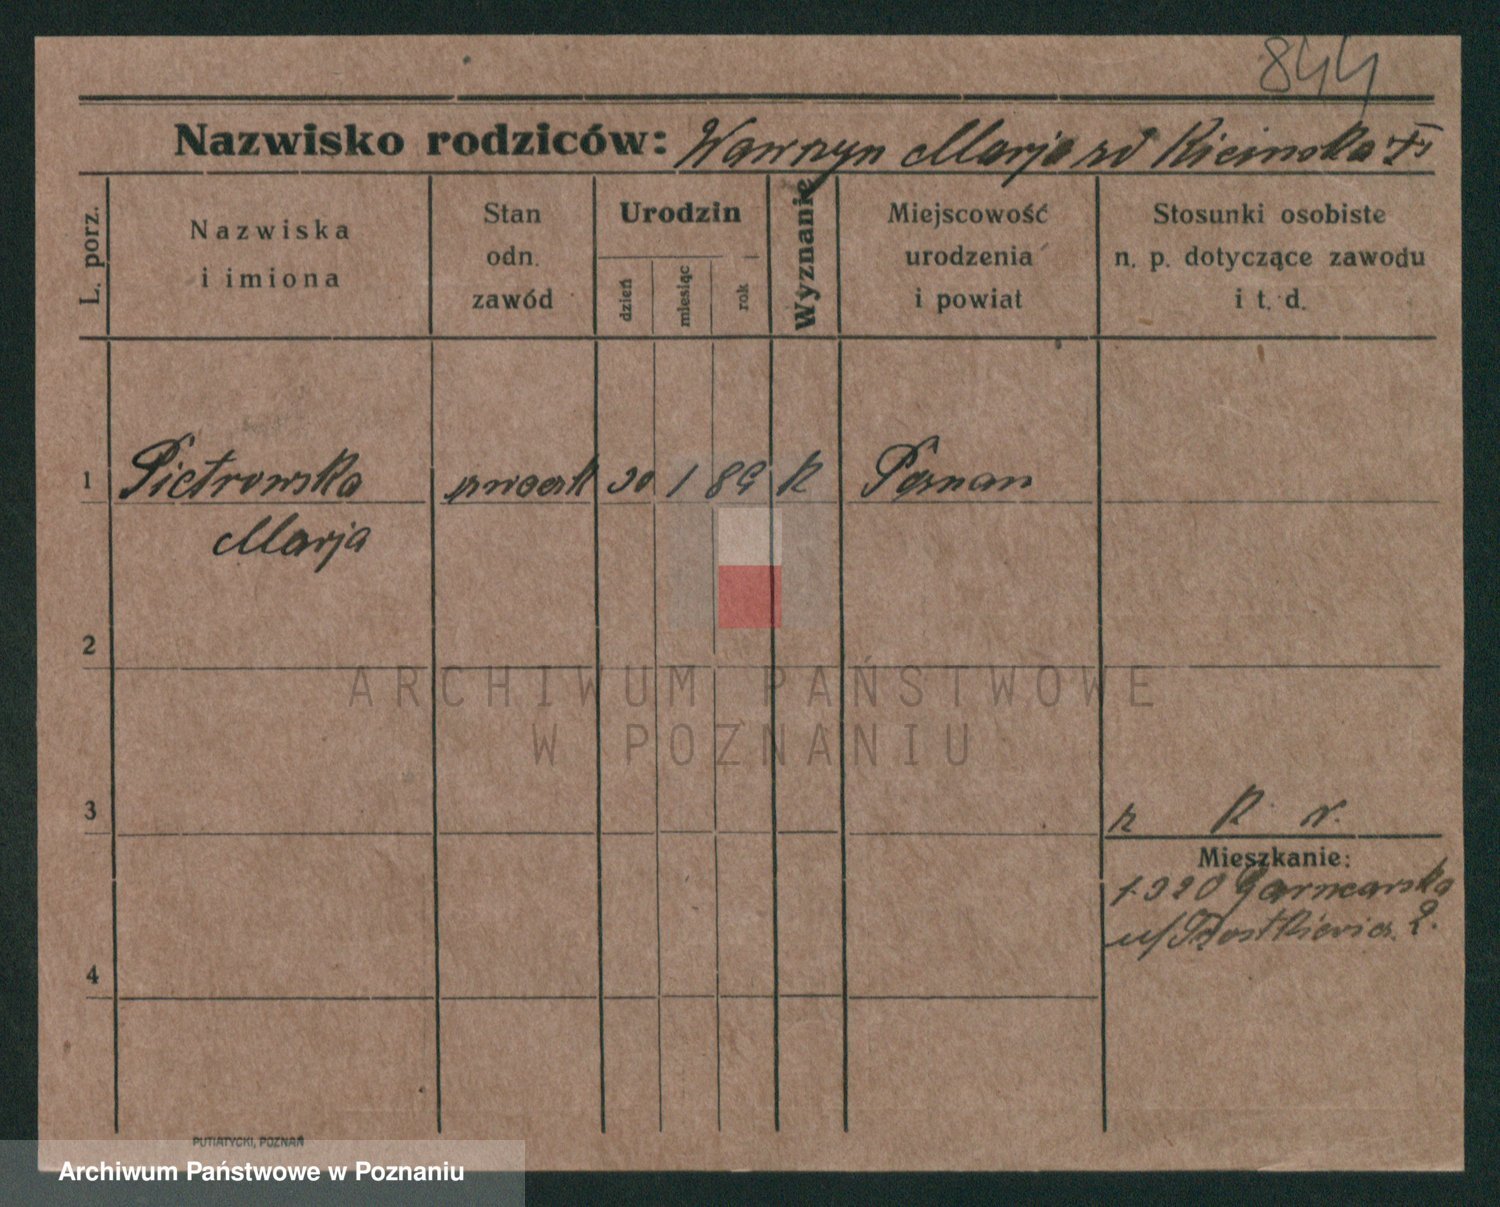 844
Nazwisko rodziców: Wawrzyn Marja zd Kicinska
L. porz.
Nazwiska
i imiona
Stan
odn.
zawód
Urodzin
dzień
miesiąc
rok
Wyznanie
Miejscowość
urodzenia
i powiat
Stosunki osobiste
n. p. dotyczące zawodu
i t. d.
1 Pietrowska 30 1 89 K Poznan
Marja
2
ARCHIWUM PAŃSTWOWE
W POZNANIU
3
Mieszkanie:
Garncarska
4
PUTIATYCKI, POZNAŃ
Archiwum Państwowe w Poznaniu